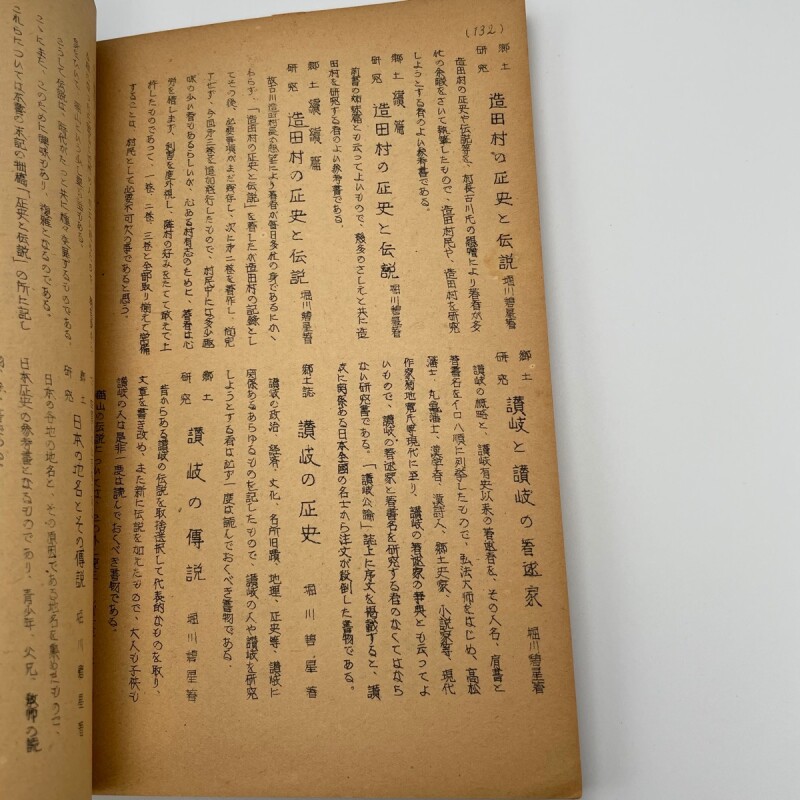 (132)
郷土
研究
造田村の歴史と伝説 堀川碧星著
造田村の歴史や伝説等を、村長古川氏の懇嘱により著者が多
忙の余暇をさいて執筆したもので、造田村民や、造田村を研究
しようとする者のよい参考書である。
郷土
研究
續篇
造田村の歴史と伝説 堀川碧星著
前書の姉妹篇とも云ってよいもので、幾多のさしえと共に造
田村を研究する者のよい参考書である。
郷土
研究
續續篇
造田村の歴史と伝説 堀川碧星著
故古川造田村長の懇望により著者が毎日多忙の身であるにかゝ
わらず、「造田村の歴史と伝説」を著したが造田村の記録とし
てその後、必要事項がまだ存在し、次に第二巻を著作し、尚完
了せず、今回第三巻を追加発行したもので、村民中には多少趣
味の少い者もあるらしいが、心ある村有志のために、著者は心
労を惜します、利害を度外視し、隣村の好みをたてて敢えて上
梓したものであって、一巻、二巻、三巻と全部取り揃えて常備
することは、村民として必要不可欠の事であると思う。
郷土
研究
讃岐と讃岐の著述家 堀川碧星著
讃岐の概略と、讃岐有史以来の著述者を、その人名、肩書と
著書名をイロハ順に列挙したもので、弘法大師をはじめ、高松
藩士、丸亀藩士、漢学者、漢詩人、郷土史家、小説家等、現代
作家菊地寛氏等現代に至り、讃岐の著述家の事典とも云ってよ
いもので、讃岐の著述家と著書名を研究する者のなくてはなら
ない研究書である。「讃岐公論」誌上に序文を掲載すると、讃
岐に関係ある日本全國の名士から注文が殺倒した書物である。
郷土誌
讃岐の歴史 堀川碧星著
讃岐の政治、経済、文化、名所旧蹟、地理、歴史等、讃岐に
関係あるあらゆるものを記したもので、讃岐の人や讃岐を研究
しようとする者は必ず一度は読んでおくべき書物である。
郷土
研究
讃岐の傳説 堀川碧星著
昔からある讃岐の伝説を取捨選択して代表的なものを取り、
文章を書き改め、また新に伝説を加えたもので、大人も子供も
讃岐の人は是非一度は読んでおくべき書物である。
郷土
研究
日本の地名とその傳説 堀川碧星著
日本の各地の地名と、その原因である地名を集めたもので、
日本歴史の参考書となるものであり、青少年、父兄、教師の読
こうして伝説は、時代がたつと共に種々変異するものである。
ここにまた、このために興味もあり、複雑ともなるのである。
これらについては本書の末記の拙稿「歴史と伝説」の所に記し